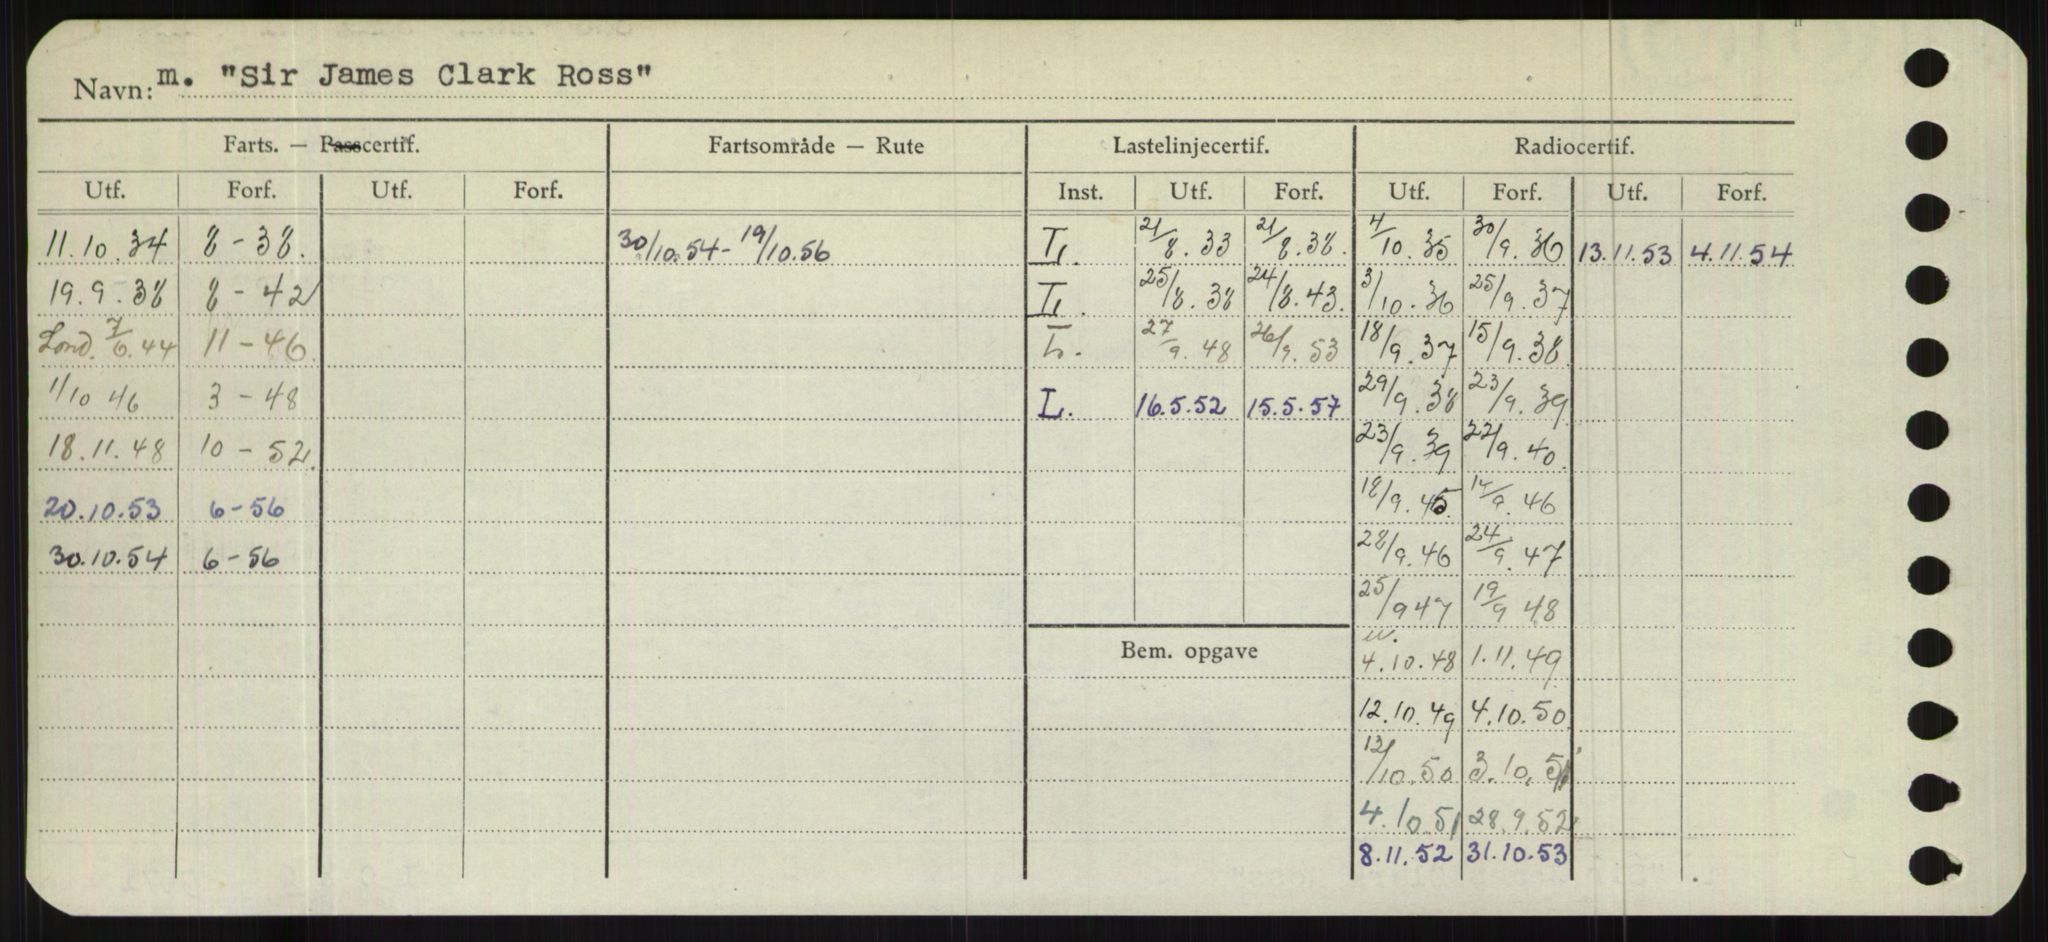 Navn: m. "Sir James Clark Ross"
Farts. — Passcertif. Fartsområde — Rute Lastelinjecertif. Radiocertif.
Utf. Forf. Utf. Forf. Inst. Utf. Forf. Utf. Forf. Utf. Forf.
11.10.34 8-38. 30/10.54-19/10.56 L. 21/8.33 21/8.38. 4/10.35 30/9.36 13.11.53 4.11.54
19.9.38 8-42 L. 25/8.38 24/8.43. 3/10.36 25/9.37
Lond. 7/6.44 11-46. L. 27/9.48 26/9.53 18/9.37 15/9.38
1/10 46 3-48 L. 16.5.52 15.5.57 29/9.38 23/9.39
18.11.48 10-52. 23/9.39 22/9.40
20.10.53 6-56 18/9.45. 14/9.46
30.10.54 6-56 28/9.46 24/9.47
25/9 47 19/9 48
Bem. opgave 4.10.48 1.11.49
12.10.49 4.10.50
12/10.50 3.10.51
4.10.51 28.9.52
8.11.52 31.10.53